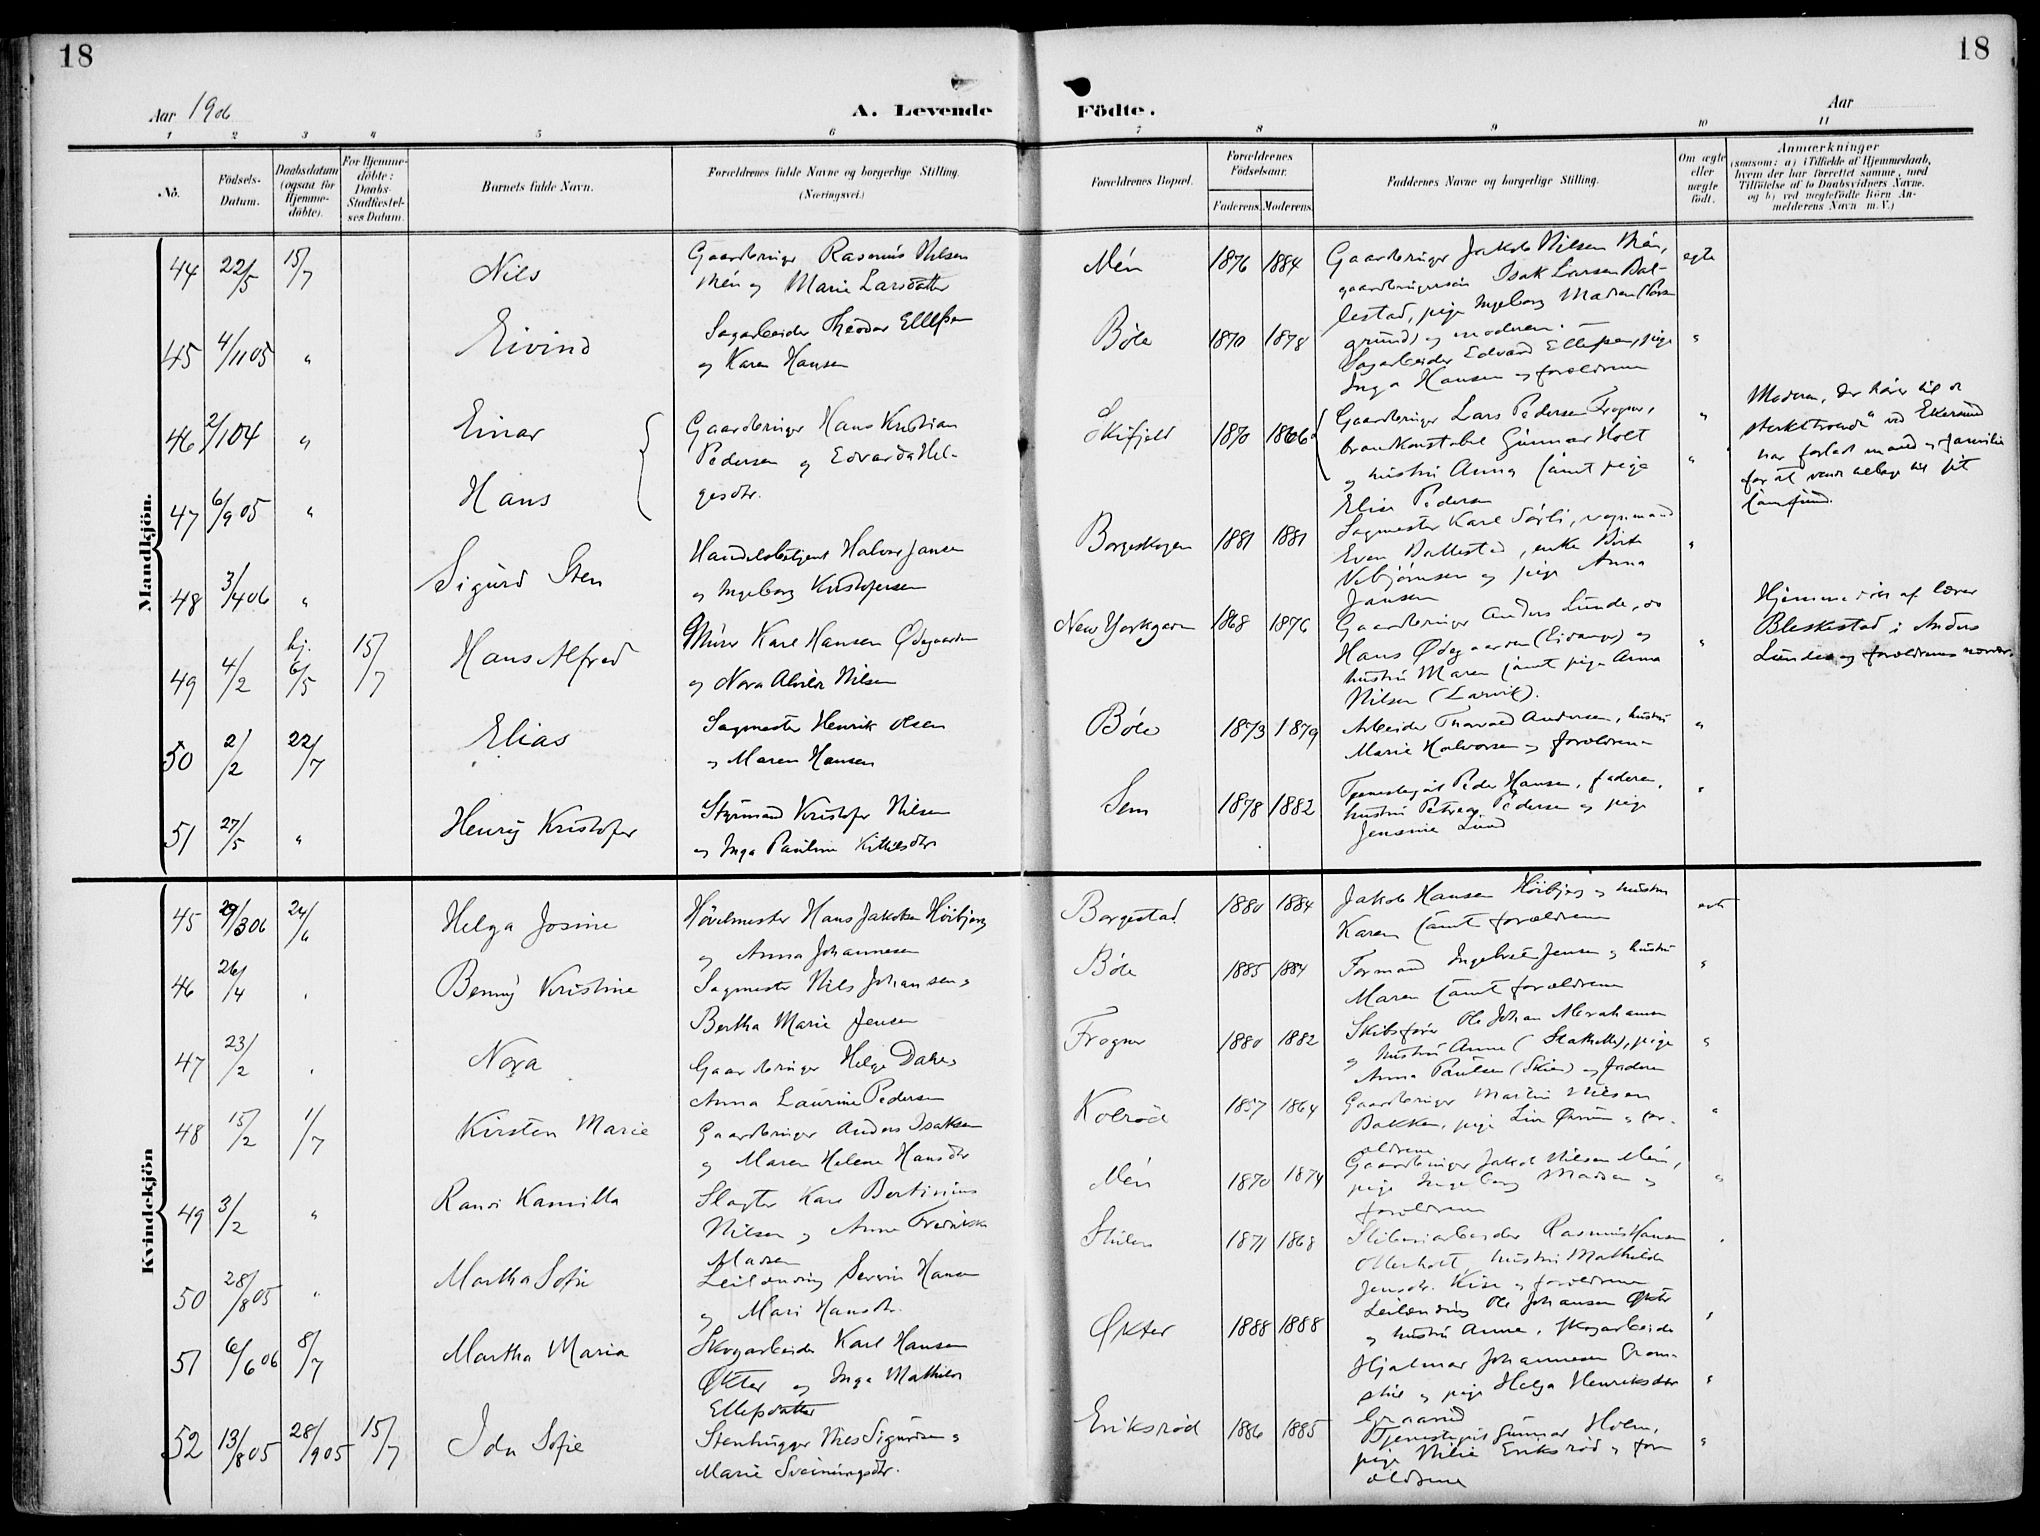 18
18
Aar 1906
A. Levende
Födte.
Aar
1 2 3 4 5 6 7 8 9 10 11
No.
Födsels-Datum.
Daabsdatum (ogsaa for Hjemme-döbte).
For Hjemme-döbte: Daabs-Stadfæstel-ses Datum.
Barnets fulde Navn.
Forældrenes fulde Navne og borgerlige Stilling. (Næringsvei.)
Forældrenes Bopæl.
Forældrenes Födselsaar.
Faderens. Moderens.
Faddernes Navne og borgerlige Stilling.
Om ægte eller uægte födt.
Anmærkninger
(saasom: a) i Tilfælde af Hjemmedaab, hvem der har forrettet samme, med Tilföielse af to Daabsvidners Navne. og b) ved uægtefödte Börn An-melderens Navn m. V.)
Mandkjön.
44 22/5 15/7 Nils
Gaardbruger Rasmus Nilsen
Mén og Marie Larsdatter
Mén 1876 1884
Gaardbruger Jakob Nilsen Mén,
gaardbrugersøn Isak Larsen Bal-
lestad, pige Ingeborg Madsen (Pors-
grund) og moderen.
egte
45 4/11 05 " Eivind
Sagarbeider Theodor Ellefsen
og Karen Hansen
Bøle 1870 1878
Sagarbeider Edvard Ellefsen, pige
Inga Hansen og forældrene
"
46 2/1 04 " Einar
47 6/9 05 " Hans
Gaardbruger Hans Kristian
Pedersen og Edvarda Hel-
gesdtr.
Skifjeld 1870 1866
Gaardbruger Lars Pedersen Frogner,
brankonstabel Gunnar Holt
og hustru Anna samt pige
Elise Pedersen
" "
Moderen, der hører til de
"sterkttroende" ved Ekersund
har forladt mand og familie
for at vende tilbage til sit
samfund.
48 3/4 06 " Sigurd Sten
Handelsbetjent Halvor Jansen
og Ingeborg Kristofersen
Borgeskogen 1881 1881
Sagmester Karl Sørli, vognmand
Even Ballestad, enke Berte
Vebjørnsen og pige Anna
Jansen
"
49 4/2 hj. 6/5 15/7 Hans Alfred
Murer Karl Hansen Ødegaarden
og Nora Alvilde Nilsen
New Yorkgaren 1868 1876
Gaardbruger Anders Lunde, do
Hans Ødegaarden (Eidanger) og
hustru Maren samt pige Anna
Nilsen (Larvik).
"
Hjemmedøbt af lærer
Bleskestad i Anders
Lundes og forældrenes nærvær.
50 2/2 22/7 Elias
Sagmester Henrik Olsen
og Maren Hansen
Bøle 1873 1879
Arbeider Thorvald Andersen, hustru
Marie Halvorsen og forældrene
"
51 27/5 " Henry Kristofer
Styrmand Kristofer Nilsen
og Inga Pauline Kittilsdtr
Sem 1878 1882
Tjenestegut Peder Hansen, faderen,
hustru Petrea Pedersen og pige
Jensine Lund
"
Kvindekjön
45 29/3 06 24/6 Helga Josine
Høvelmester Hans Jakobsen Høibjerg
og Anna Johannesen
Borgestad 1880 1884
Jakob Hansen Høibjerg og hustru
Karen samt forældrene
egte
46 26/4 " Benny Kristine
Sagmester Nils Johansen og
Bertha Marie Jensen
Bøle 1885 1884
Formand Ingebret Jensen og hustru
Maren samt forældrene
"
47 23/2 " Nora
Gaardbruger Helge Dale og
Anna Laurine Pedersen
Frogner 1880 1882
Skibsfører Ole Johan Abrahamsen
og hustru Anne (Stathelle), pige
Anna Paulsen (Skien) og faderen
"
48 15/2 1/7 Kirsten Marie
Gaardbruger Anders Isaksen
og Maren Helene Hansdtr
Kolrød 1857 1864
Gaardbruger Martin Nilsen
Bakken, pige Lina og for-
ældrene
"
49 3/2 " Randi Kamilla
Slagter Karl Bertinius
Nilsen og Anne Fredrikke
Madsen
Mén 1870 1874
Gaardbruger Jakob Nilsen Mén,
pige Ingeborg Madsen og
forældrene
"
50 28/8 05 " Martha Sofie
Leilænding Severin Hansen
og Mari Hansdtr.
Stulen 1871 1868
Rasmus Hansen
Otterholt, hustru Mathilde
Jensdtr. Kise og forældrene
"
51 6/6 06 8/7 Martha Maria
Skogarbeider Karl Hansen
Økter og Inga Mathilde
Ellefsdatter
Økter 1888 1888
Leilænding Ole Johansen Økter
og hustru Anne, skogarbeider
Hjalmar Johannesen
og pige Helga Henriksdtr
"
52 13/8 05 28/9 05 15/7 Ida Sofie
Stenhugger Nils Sigurdsen og
Marie Sveinungsdtr.
Eriksrød 1886 1885
Tjenestegut Gunnar Holm,
pige Nilie Eriksrød og for-
ældrene
"